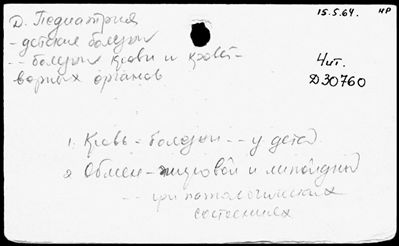 Д. Педиатрия
15.5.64. нр
- детские болезни
-- болезни крови и кровет-
ворных органов
4 ит.
Д30760
1. Кровь - болезни -- у детей
2 Обмен - жировой и липоидный
-- при патологических
состояниях